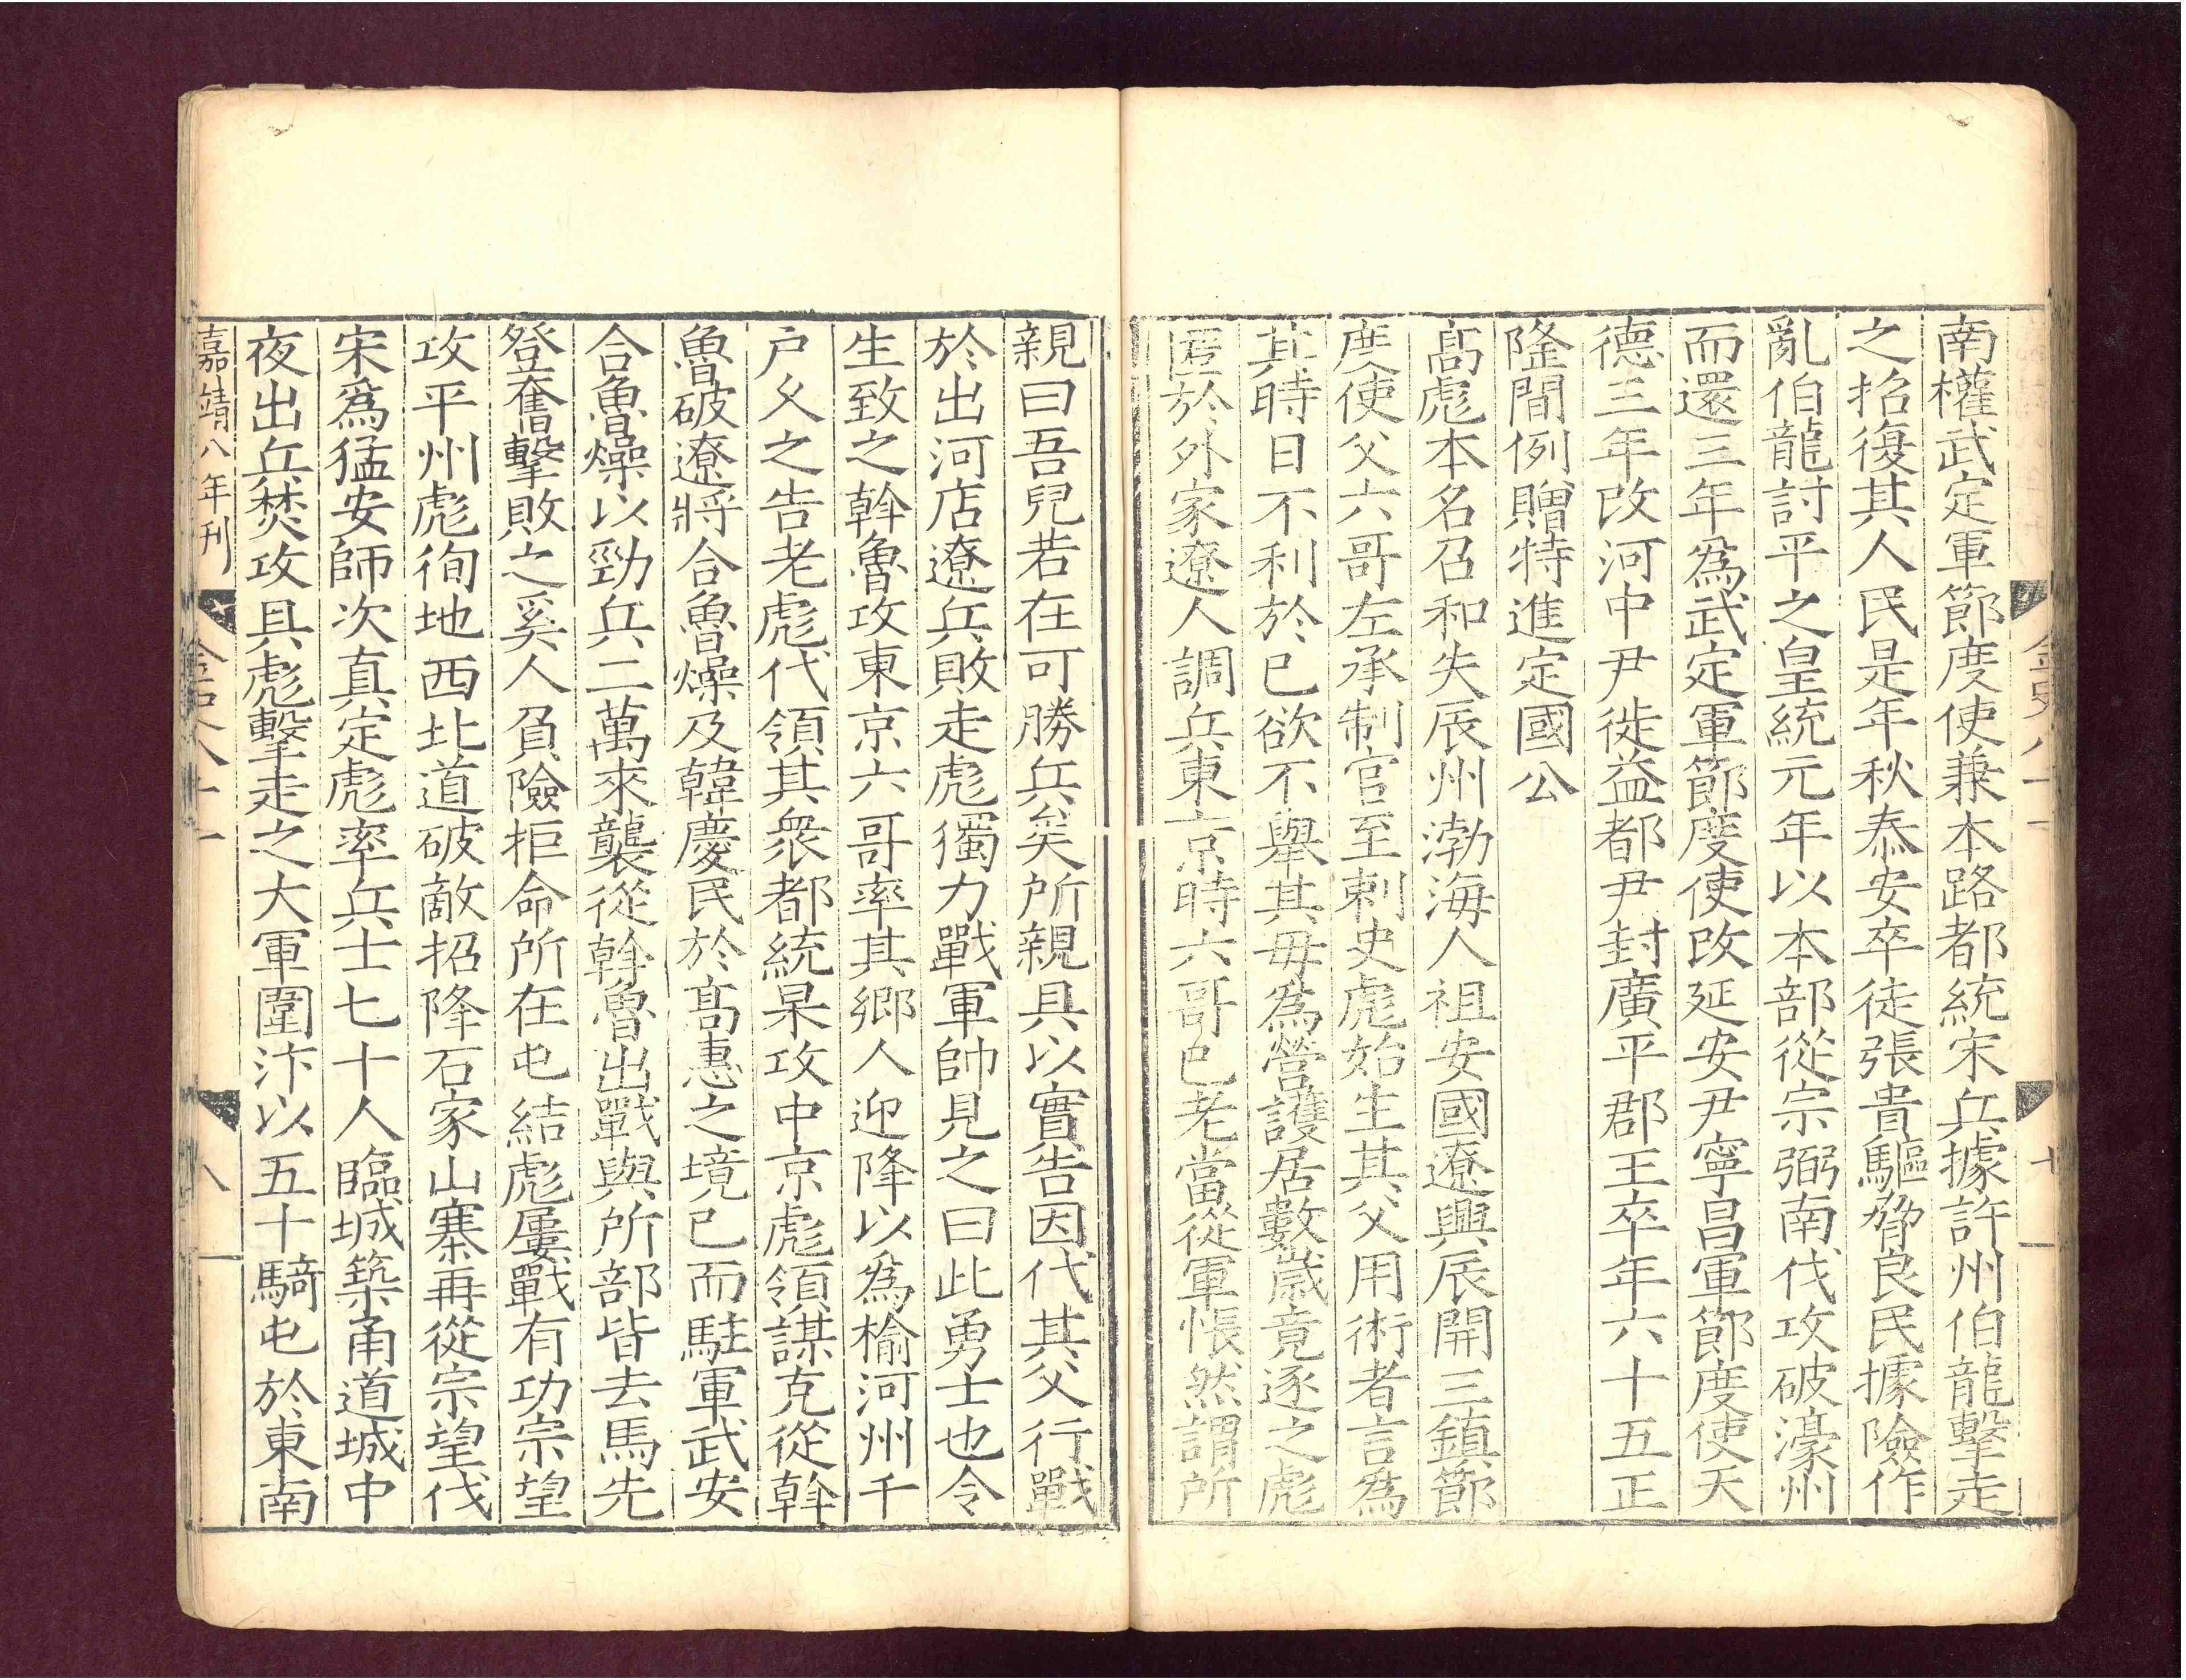 南權武定軍節度使兼本路都統宋兵據許州伯龍擊走
之招復其人民是年秋泰安卒徒張貴驅脅良民據險作
亂伯龍討平之皇統元年以本部從宗弼南伐攻破濠州
而還三年爲武定軍節度使改延安尹寧昌軍節度使天
德三年改河中尹徙益都尹封廣平郡王卒年六十五正
隆間例贈特進定國公
髙彪本名召和失辰州渤海人祖安國遼興辰開三鎮節
度使父六哥左承制官至刺史彪始生其父用術者言爲
其時日不利於已欲不舉其母爲營護居數歲竟逐之彪
匿於外家遼人調兵東京時六哥已老當從軍悵然謂所
親曰吾兒若在可勝兵矣所親具以實告因代其父行戰
於出河店遼兵敗走彪獨力戰軍帥見之曰此勇士也令
生致之斡魯攻東京六哥率其鄉人迎降以爲榆河州千
户父之告老彪代領其衆都統杲攻中京彪領謀克從斡
魯破遼將合魯燥及韓慶民於髙惠之境已而駐軍武安
合魯燥以勁兵二萬來襲從斡魯出戰與所部皆去馬先
登奮擊敗之奚人負險拒命所在屯結彪屢戰有功宗望
攻平州彪徇地西北道破敵招降石家山寨再從宗望伐
宋爲猛安師次真定彪率兵士七十人臨城築甬道城中
夜出兵焚攻具彪擊走之大軍圍汴以五十騎屯於東南
嘉靖八年刊 八